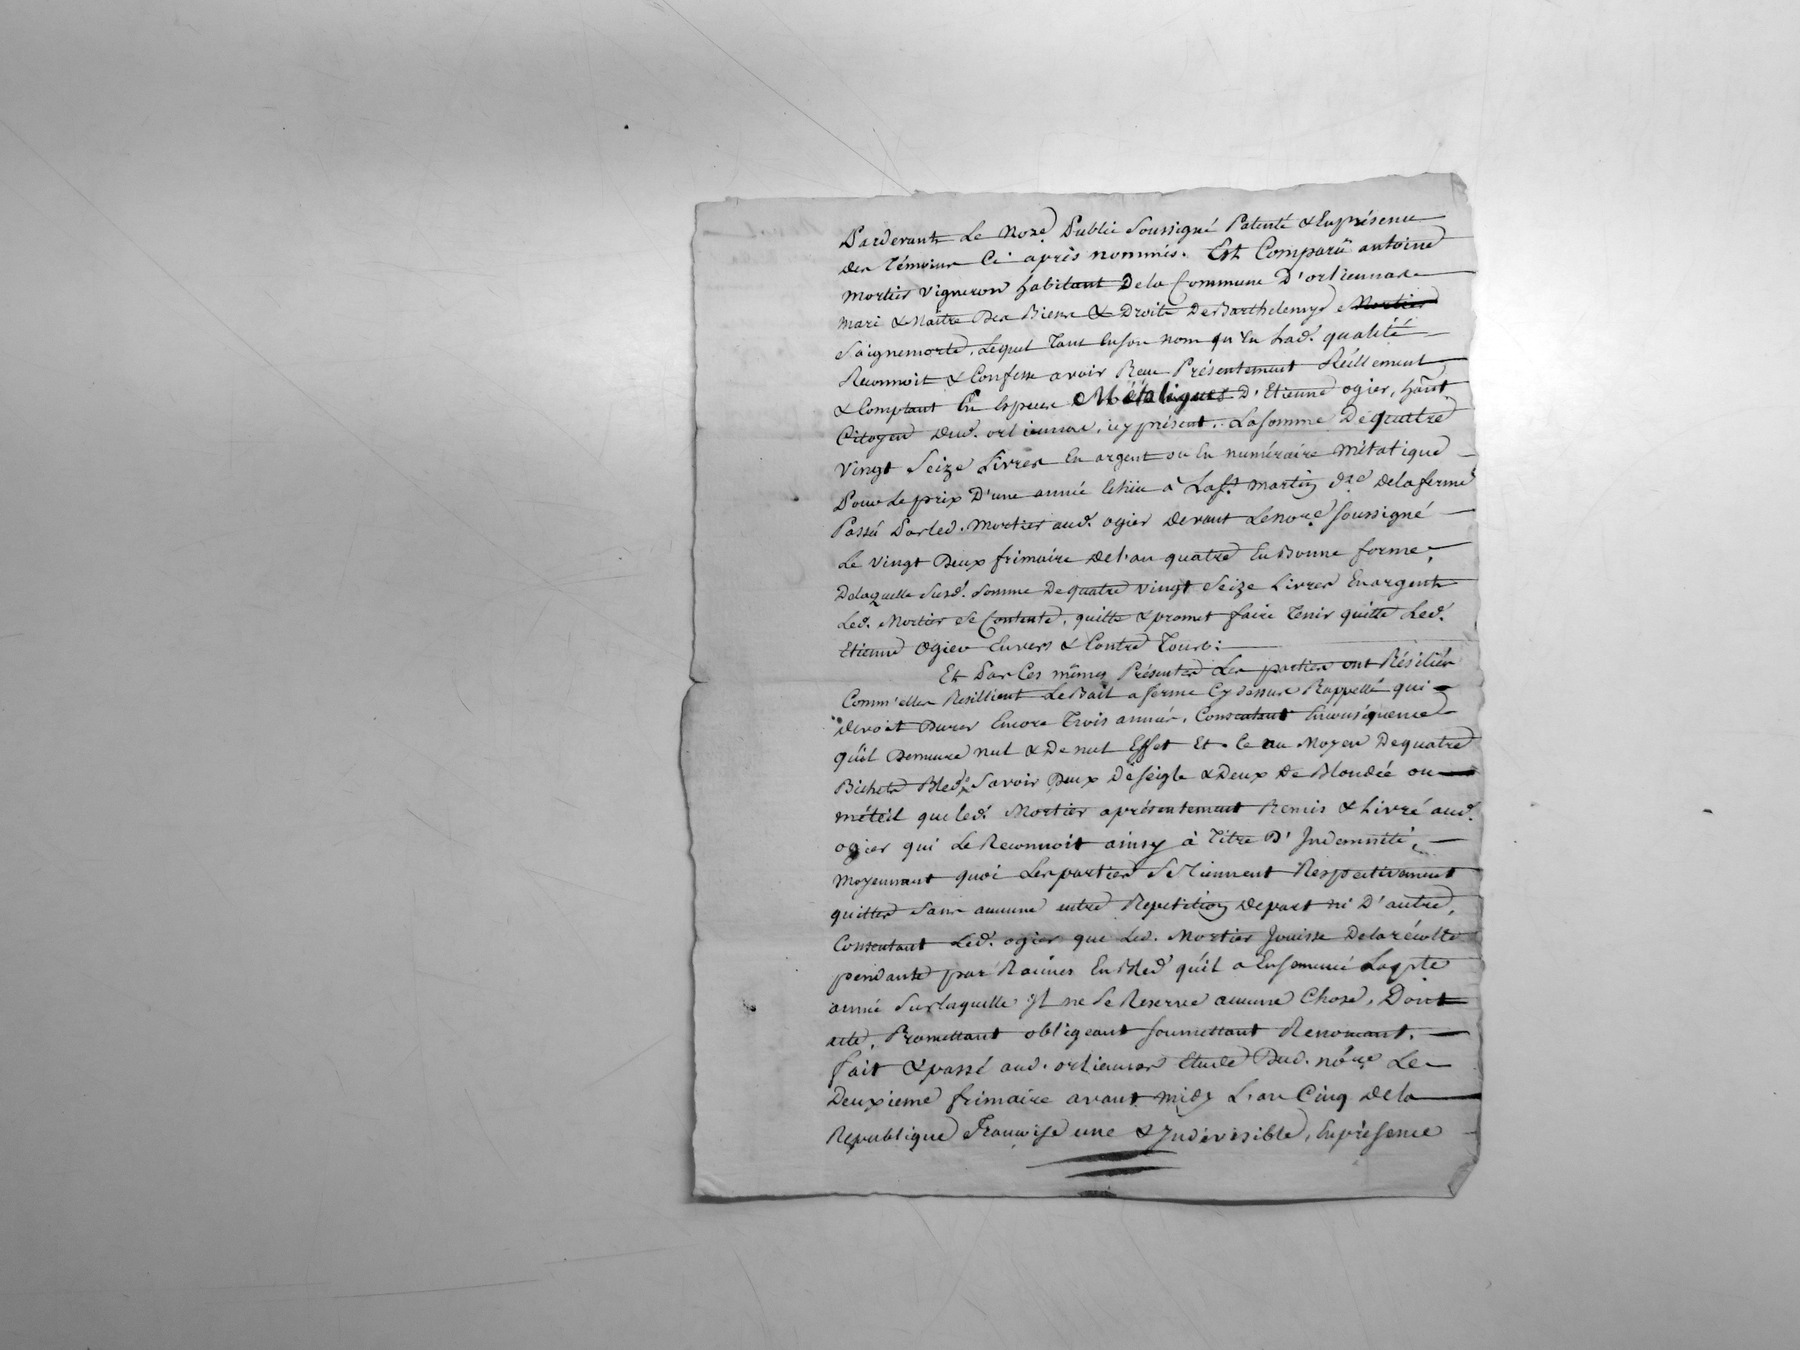 Pardevant Le Nore. Public Soussigné Patenté & En présence
des Témoins Ci après nommés. Est Comparû antoine
Mortier Vigneron habitant De la Commune D'orliennas
mari & Maître Des Biens & Droits De Barthelemye Mortier
Saignemorte, Lequel Tant En son nom qu'En Lad. qualité
Reconnoit & Confesse avoir Reçu Présentement Réellement
& Comptant En Especes Métaliques D'Etienne ogier, hant
Citoyen Dud. orliennas, icy présent. La somme De quatre
Vingt Seize Livres En argent ou En numéraire métatique
Pour Le prix D'une année Echüe à La St. Martin dre De la ferme
Passé Par led. Mortier aud. ogier devant Le nore soussigné
Le Vingt Deux frimaire De l'an quatre En Bonne forme,
De laquelle Susd. Somme De quatre vingt Seize Livres En argent
Led. Mortier Se Contente, quitte & promet faire Tenir quitte Led.
Etienne Ogier Envers & Contre Tous:
Et Par Ces mêmes Présentes Les parties ont Résiliés
Comm'elles Resillient Le Bail a ferme Cy dessus Rappellé qui
devoit Durer Encore Trois années, Consentant En conséquence
qu'il Demeure nul & De nul Effet Et Ce au Moyen De quatre
Bichets Bled, Savoir Deux De Seigle & Deux De Blondée ou
méteil que led. Mortier a présentement Remis & Livré aud.
ogier qui Le Reconnoit ainsy à Titre D'Indemnité,
Moyennant quoi Les parties Se Tiennent Respectivement
quittes Sans aucune autre Repetition De part ni D'autre,
Consentant Led. ogier que Led. Mortier Jouisse De la récolte
pendante par Racines En Bled qu'il a Ensemencé La pte
année Sur laquelle Il ne Se Reserve aucune Chose, Dont
acte, Promettant obligeant Soumettant Renonçant,
fait & passé aud. orliennas Etude Dud. nore Le
Deuxieme frimaire avant midy L'an Cinq De la
Republique Françoise une & Indivisible, En présence